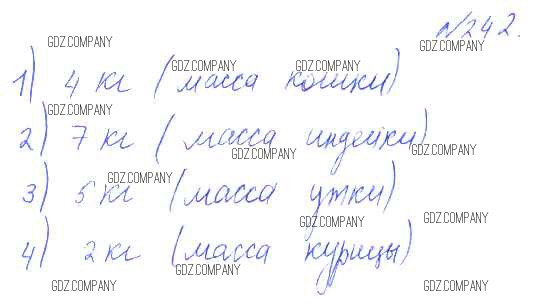 №242.
GDZ.COMPANY GDZ.COMPANY
GDZ.COMPANY GDZ.COMPANY
1) 4 кг (масса кошки)
GDZ.COMPANY
2) 7 кг (масса индейки)
GDZ.COMPANY GDZ.COMPANY
GDZ.COMPANY
3) 5 кг (масса утки)
GDZ.COMPANY GDZ.COMPANY
4) 2 кг (масса курицы)
GDZ.COMPANY
GDZ.COMPANY GDZ.COMPANY